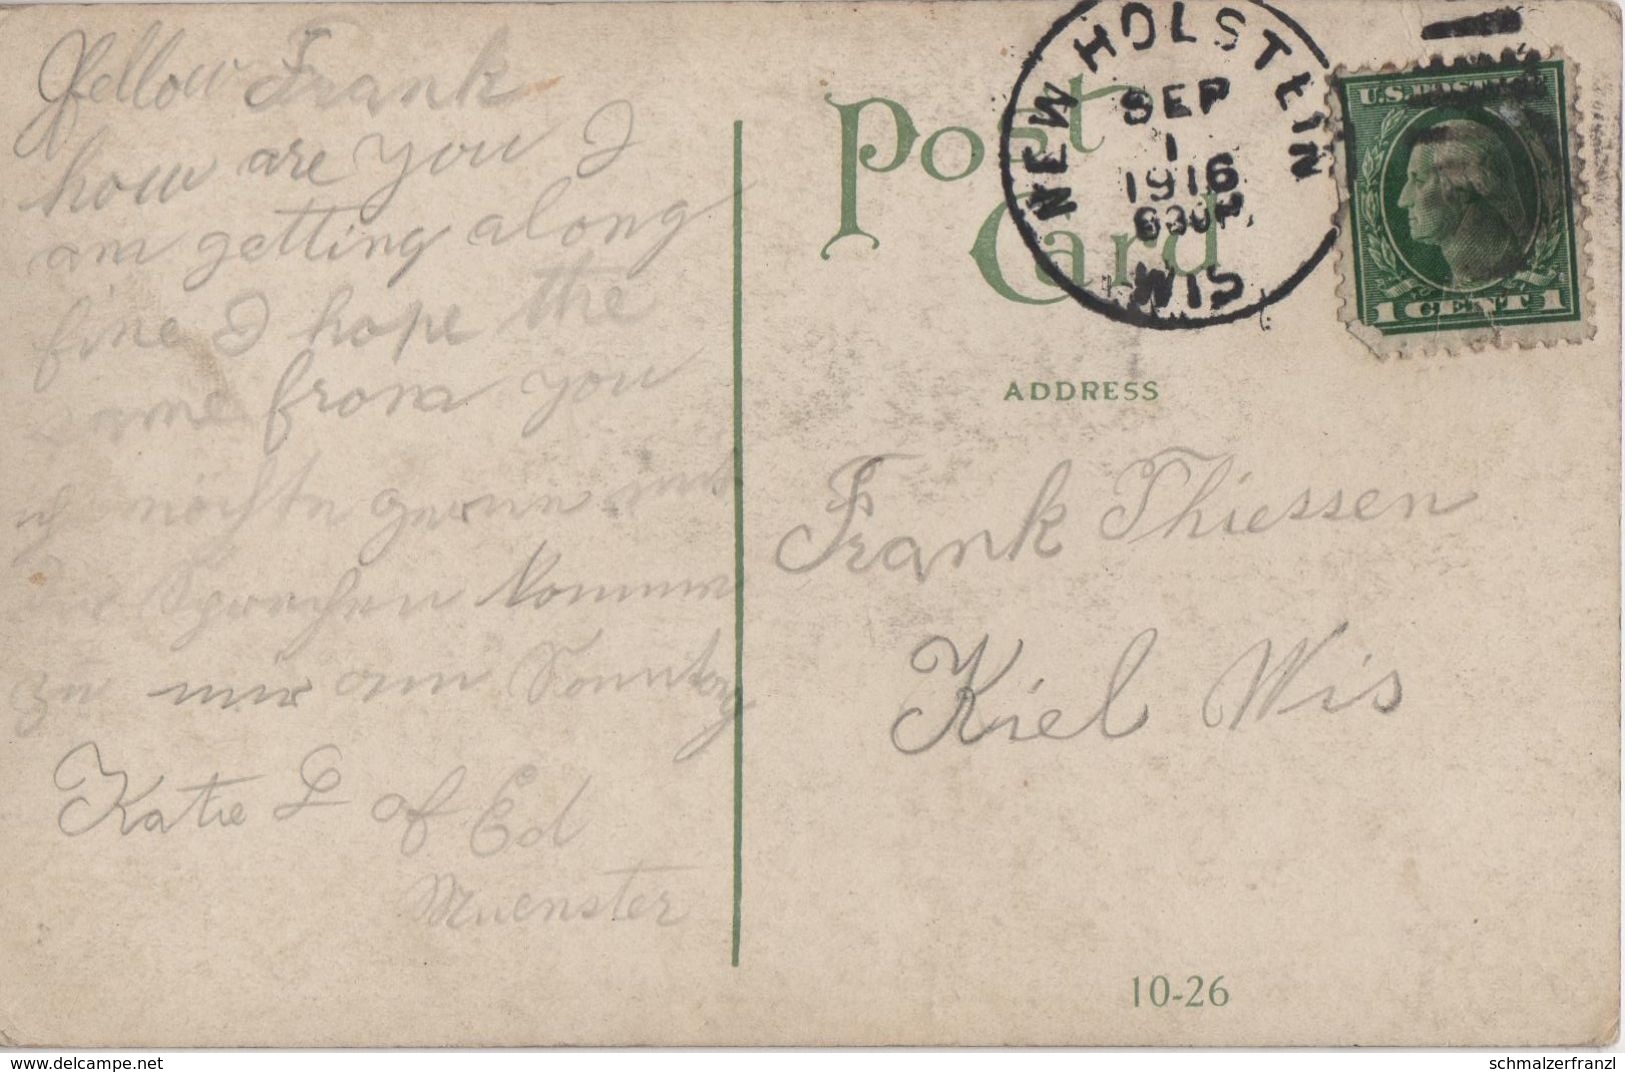 Hellow Frank
how are you I
am getting along
fine I hope the
same from you
ich möchte gerne mit
Sprechen kommen
zu mir am Sonntag
Katie L of Ed
Muenster
Post
Card
NEW HOLSTEIN
SEP
1
1916
630P.
WIS.
U.S. POSTAGE
1 CENT 1
ADDRESS
Frank Thiessen
Kiel Wis
10-26
www.delcampe.net
schmalzerfranzl